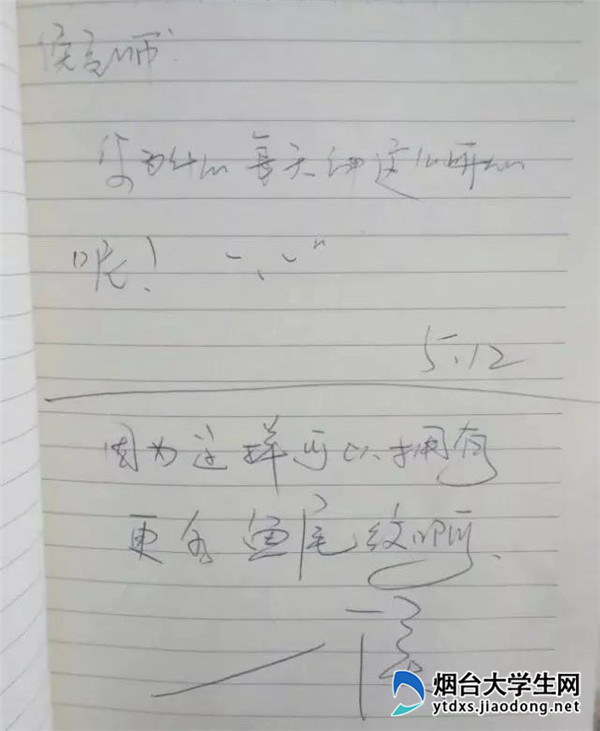 你为什么每天都这么开心
呢!
5.12
因为这样可以拥有
更多鱼尾纹啊
烟台大学生网
ytdxs.jiaodong.net